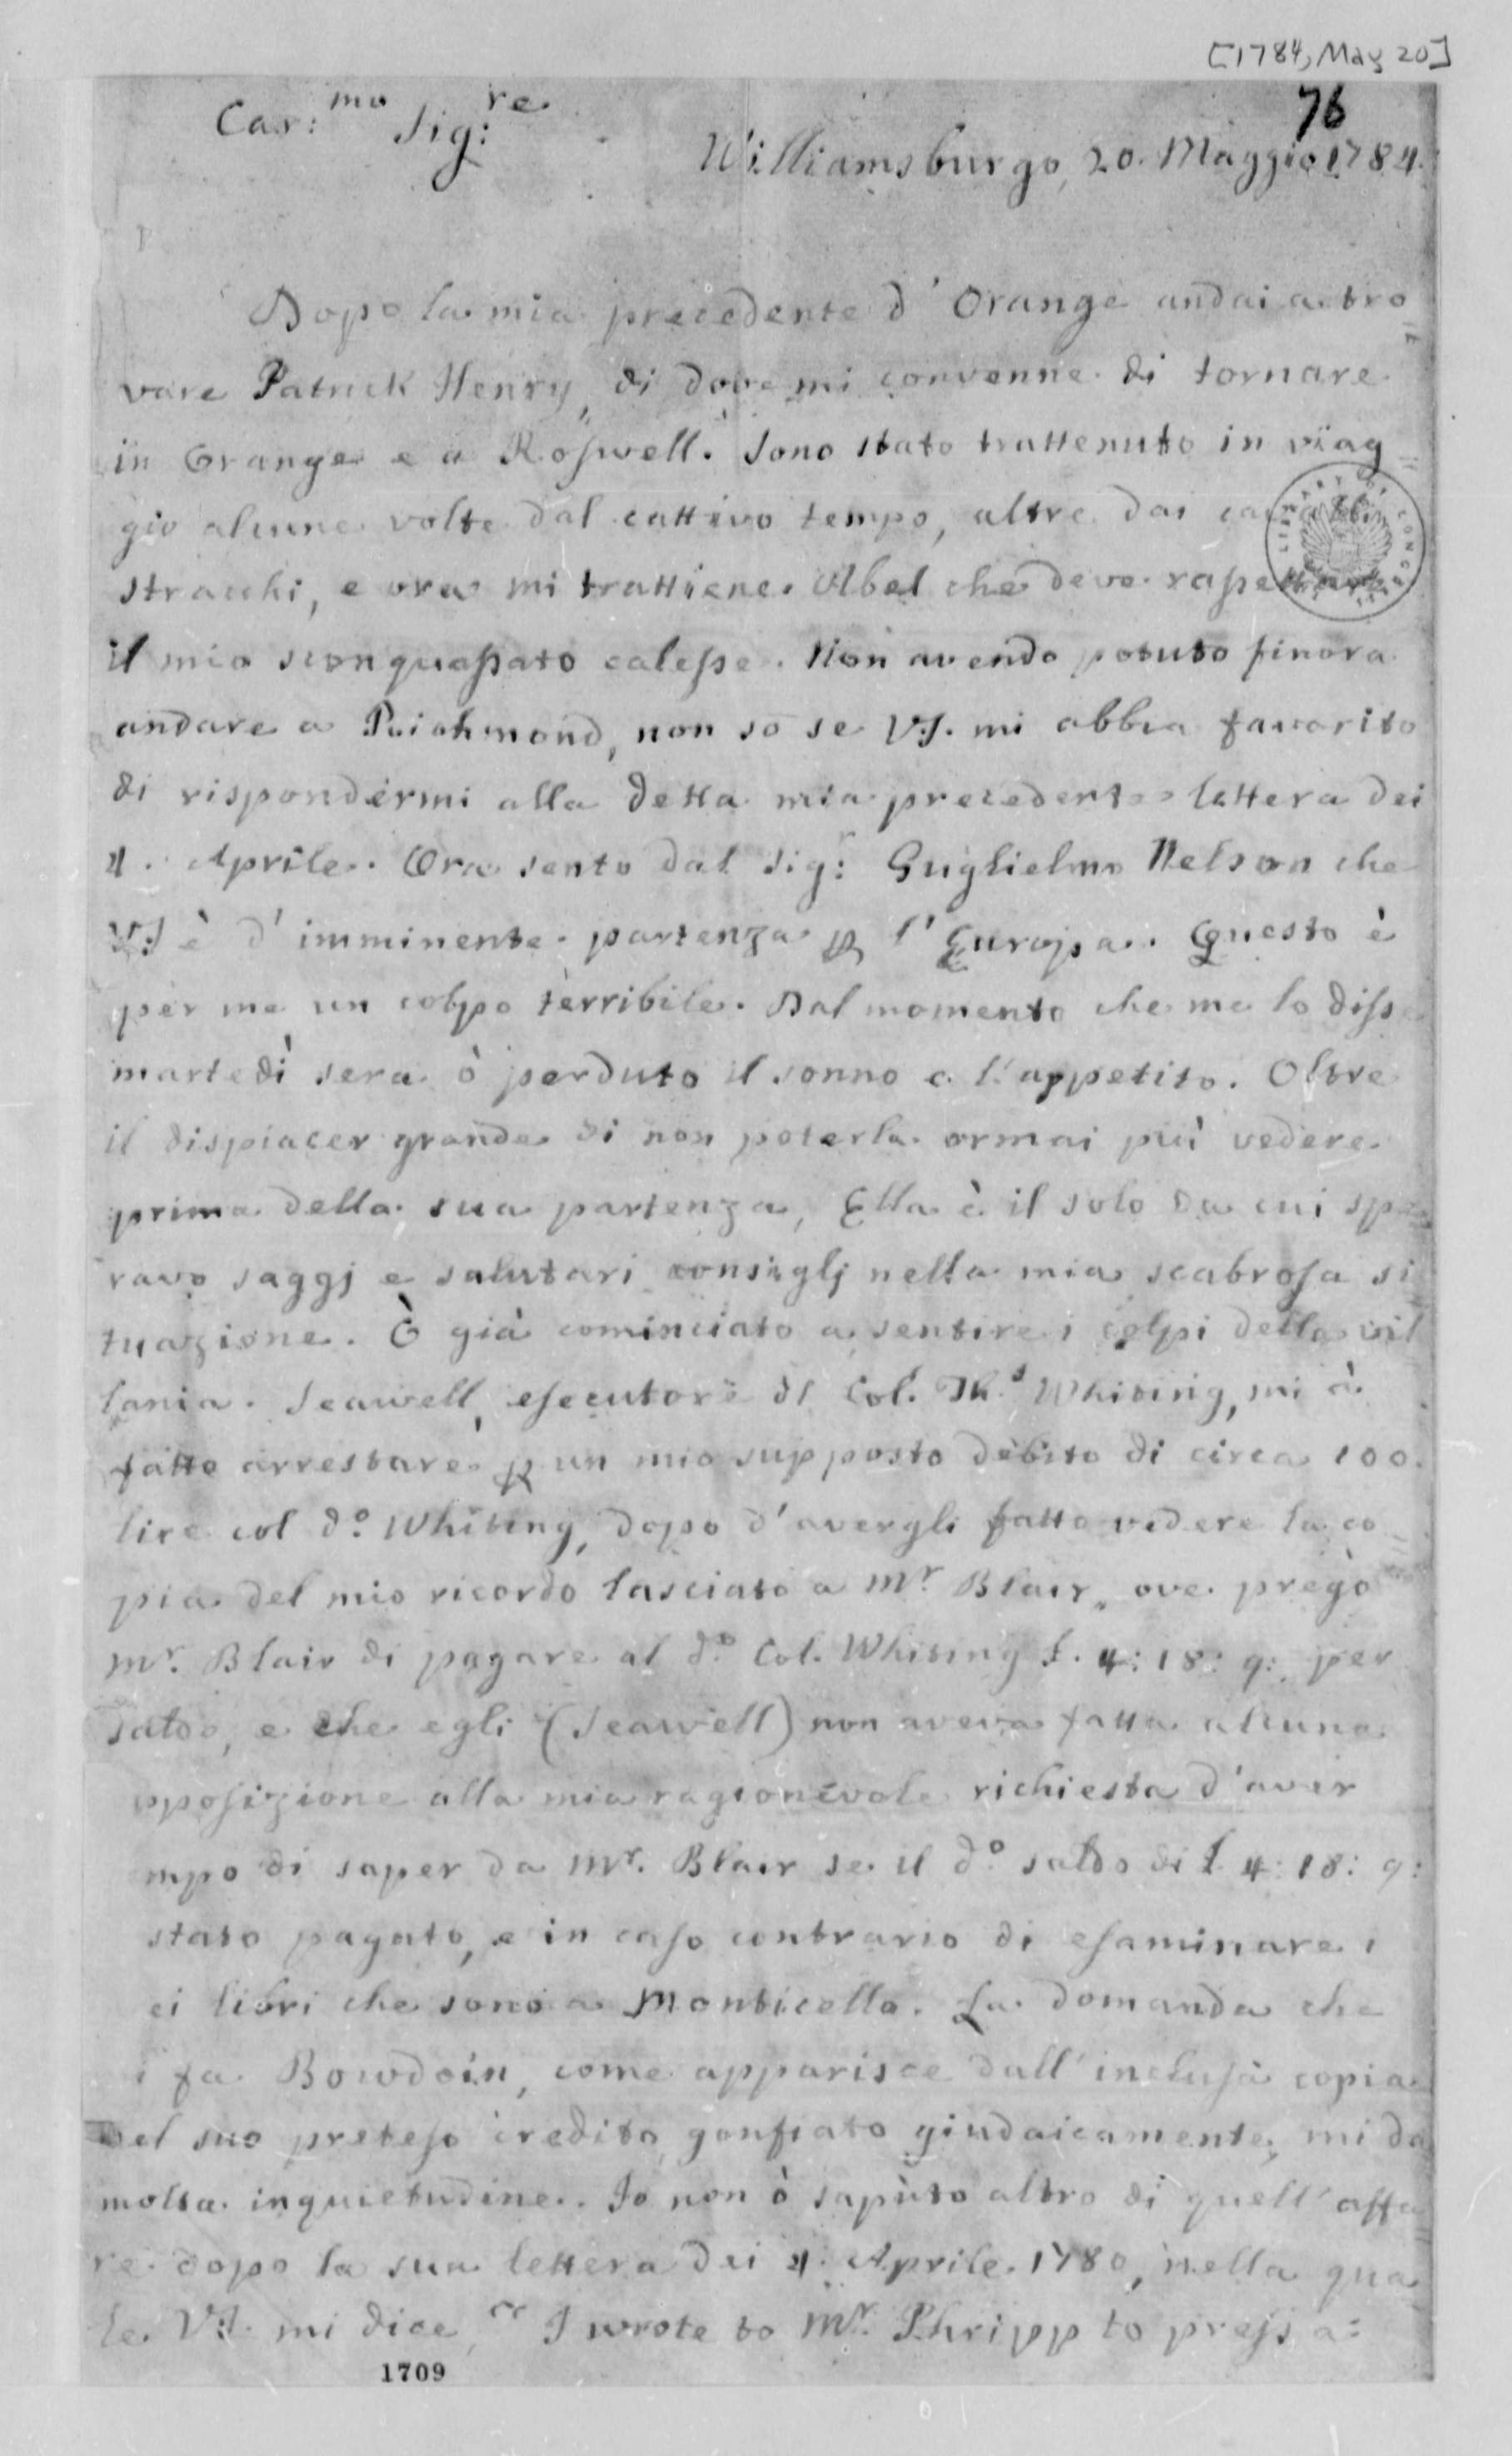 [1784, May 20]
76
Car:mo Sig:re
Williamsburgo, 20. Maggio 1784.
Dopo la mia precedente d'Orange andai a tro=
vare Patrick Henry, di dove mi convenne di tornare
in Orange e a Roſwell. Sono stato trattenuto in viag=
gio alcune volte dal cattivo tempo, altre dai cavalli
stracchi, e ora mi trattiene Abel che deve raſsettare
il mio sconquaſsato caleſse. Non avendo potuto finora
andare a Richmond, non so se V.S. mi abbia favorito
di rispondermi alla detta mia precedente lettera dei
4. Aprile. Ora sento dal Sig:r Guglielmo Nelson che
V:S è d'imminente partenza p l'Europa. Questo è
per me un colpo terribile. Dal momento che me lo diſse
martedì sera ò perduto il sonno e l'appetito. Oltre
il dispiacer grande di non poterla ormai più vedere
prima della sua partenza, Ella è il solo da cui spe
ravo saggj e salutari consiglj nella mia scabroſa si
tuazione. Ò già cominciato a sentire i colpi della vil
lania. Seawell, eſecutore di Col. Th.s Whiting, mi à
fatto arrestare p un mio supposto debito di circa 100.
lire col d.o Whiting, dopo d'avergli fatto vedere la co=
pia del mio ricordo lasciato a Mr. Blair, ove pregò
Mr. Blair di pagare al d.o Col. Whiting £. 4:18:9: per
saldo, e che egli (Seawell) non aveva fatta alcuna
oppoſizione alla mia ragionevole richiesta d'aver
mpo di saper da Mr. Blair se il d.o saldo di £ 4:18:9:
stato pagato, e in caſo contrario di eſaminare i
ei libri che sono a Monticello. La domanda che
i fa Bowdoin, come apparisce dall'incluſa copia
del suo preteſo credito gonfiato giudaicamente, mi da
molta inquietudine. Io non ò saputo altro di quell'affa
re dopo la sua lettera dei 4. Aprile 1780, nella qua
le V:S. mi dice "I wrote to Mr. Phripp to preſs a:
1709
LIBRARY OF CONGRESS